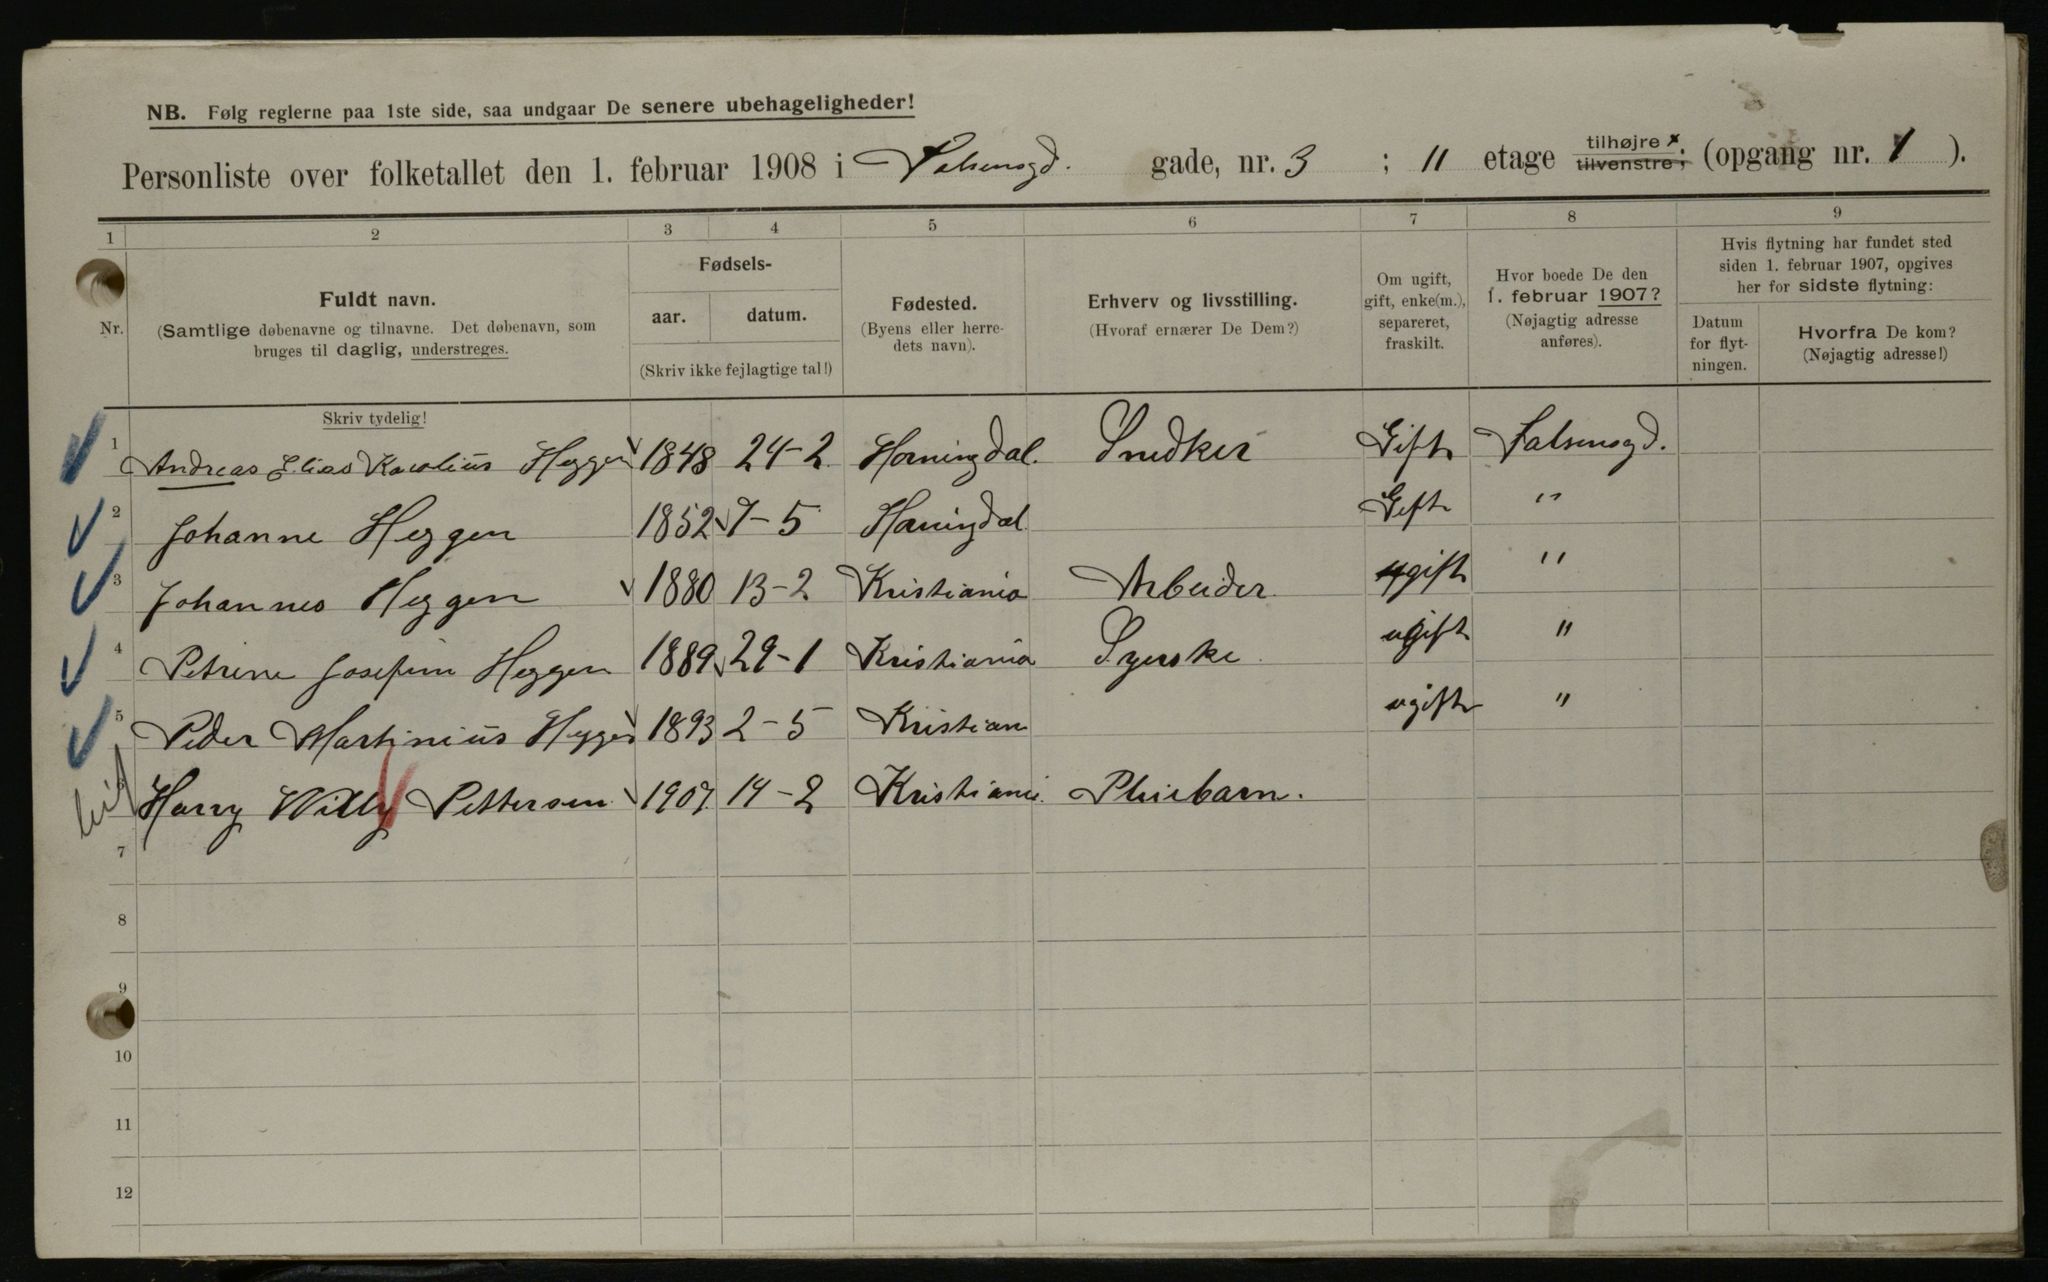 NB. Følg reglerne paa 1ste side, saa undgaar De senere ubehageligheder!
Personliste over folketallet den 1. februar 1908 i Falsensgd. gade, nr. 3 ; 11 etage tilhøjre x tilvenstre; (opgang nr. 1 ).
1 2 3 4 5 6 7 8 9
Nr.
Fuldt navn.
(Samtlige døbenavne og tilnavne. Det døbenavn, som
bruges til daglig, understreges.
Skriv tydelig!
Fødsels-
aar. datum.
(Skriv ikke fejlagtige tal!)
Fødested.
(Byens eller herre-
dets navn).
Erhverv og livsstilling.
(Hvoraf ernærer De Dem?)
Om ugift,
gift, enke(m.),
separeret,
fraskilt.
Hvor boede De den
1. februar 1907?
(Nøjagtig adresse
anføres).
Hvis flytning har fundet sted
siden 1. februar 1907, opgives
her for sidste flytning:
Datum
for flyt-
ningen.
Hvorfra De kom?
(Nøjagtig adresse!)
1 Andreas Elias Karolius Heggen 1848 24-2 Horningdal. Snedker Gift Falsensgd.
2 Johanne Heggen 1852 7-5 Horningdal Gift "
3 Johannes Heggen 1880 13-2 Kristiania Arbeider ugift "
4 Petrine Josefine Heggen 1889 29-1 Kristiania Syerske ugift "
5 Peder Martinius Heggen 1893 2-5 Kristian ugift "
Harry Willy Pettersen 1907 14-2 Kristiania Pleiebarn.
7
8
9
10
11
12